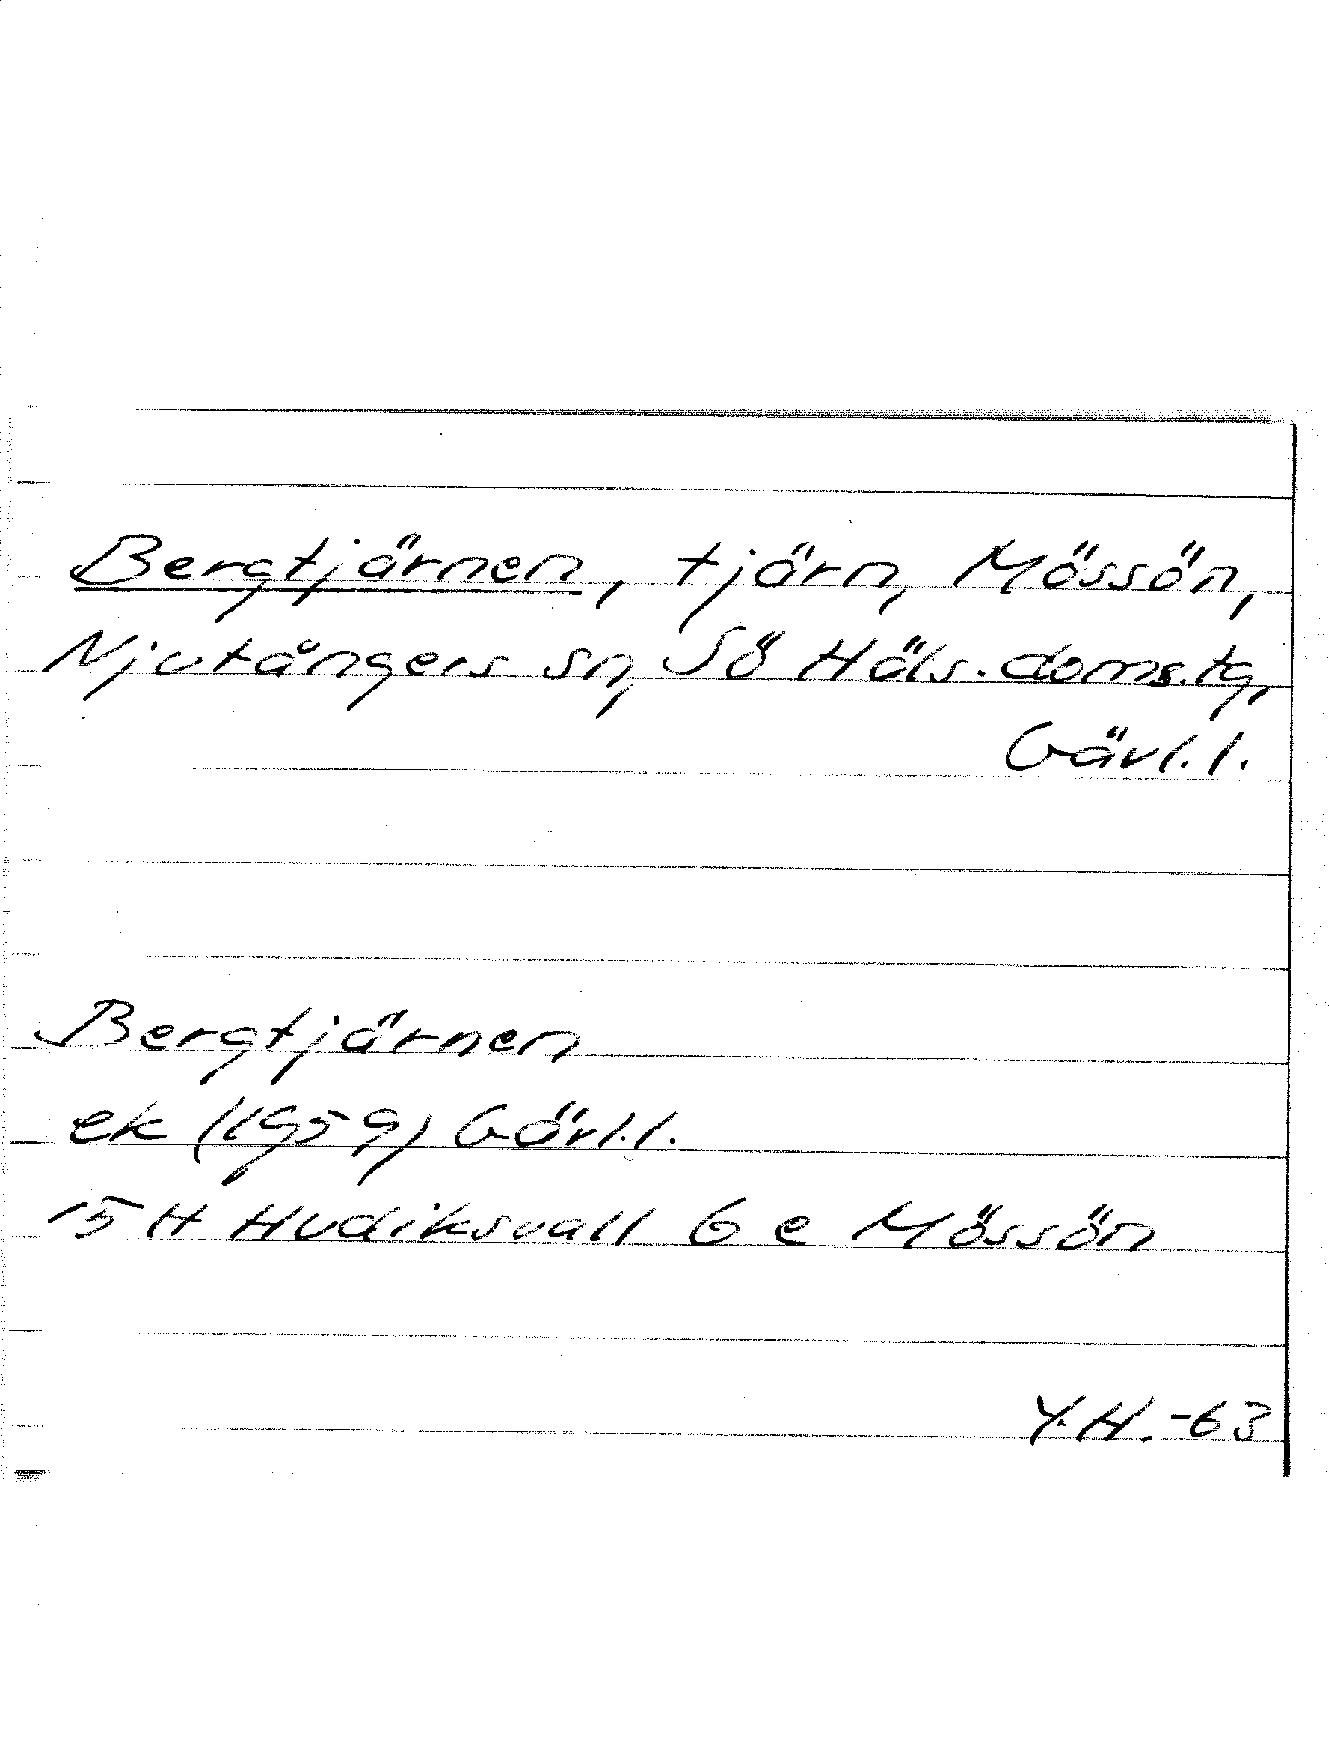 Bergtjärnen, tjärn, Mössön,
Njutångers sn, Sö Häls. doms.tg,
Gävl.l.
Bergtjärnen
ek (1959) Gävl.l.
15 H Hudiksvall 6 e Mössön
Y.H. -63